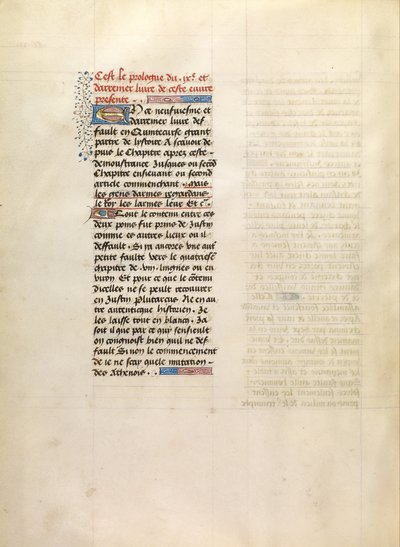 C'est le prologue du .ixe. et
darrenier livre de ceste euvre
presente . .
En ce neufviesme et
darrenier livre def
fault en Quintecurse grant
partie de lystoire A scavoir de
puis le Chapitre apres ceste
demoustrance Jusques ou second
Chapitre ensievant ou second
article commenchant . mais
les gens darmes regardans
le roy les larmes leur Et c.
Tout le contenu entre ces
deux poins fut prins de Justin
comme es autres lieux ou il
deffault . Si y a ancores une autre
petite faulte vers le quatriesme
chapitre de . lingnes ou en
viron Et pour ce que le contenu
dicelles ne se peult recouvrer
en Justin plutarcus Ne en au
tre autentique hystorien . Je
les laisse tout en blanc . Ja
soit il que par ce qui sensieult
on congnoist bien quil ne def
fault Sinon le commencement
de ie ne scay quele mutation
des Athenois . .